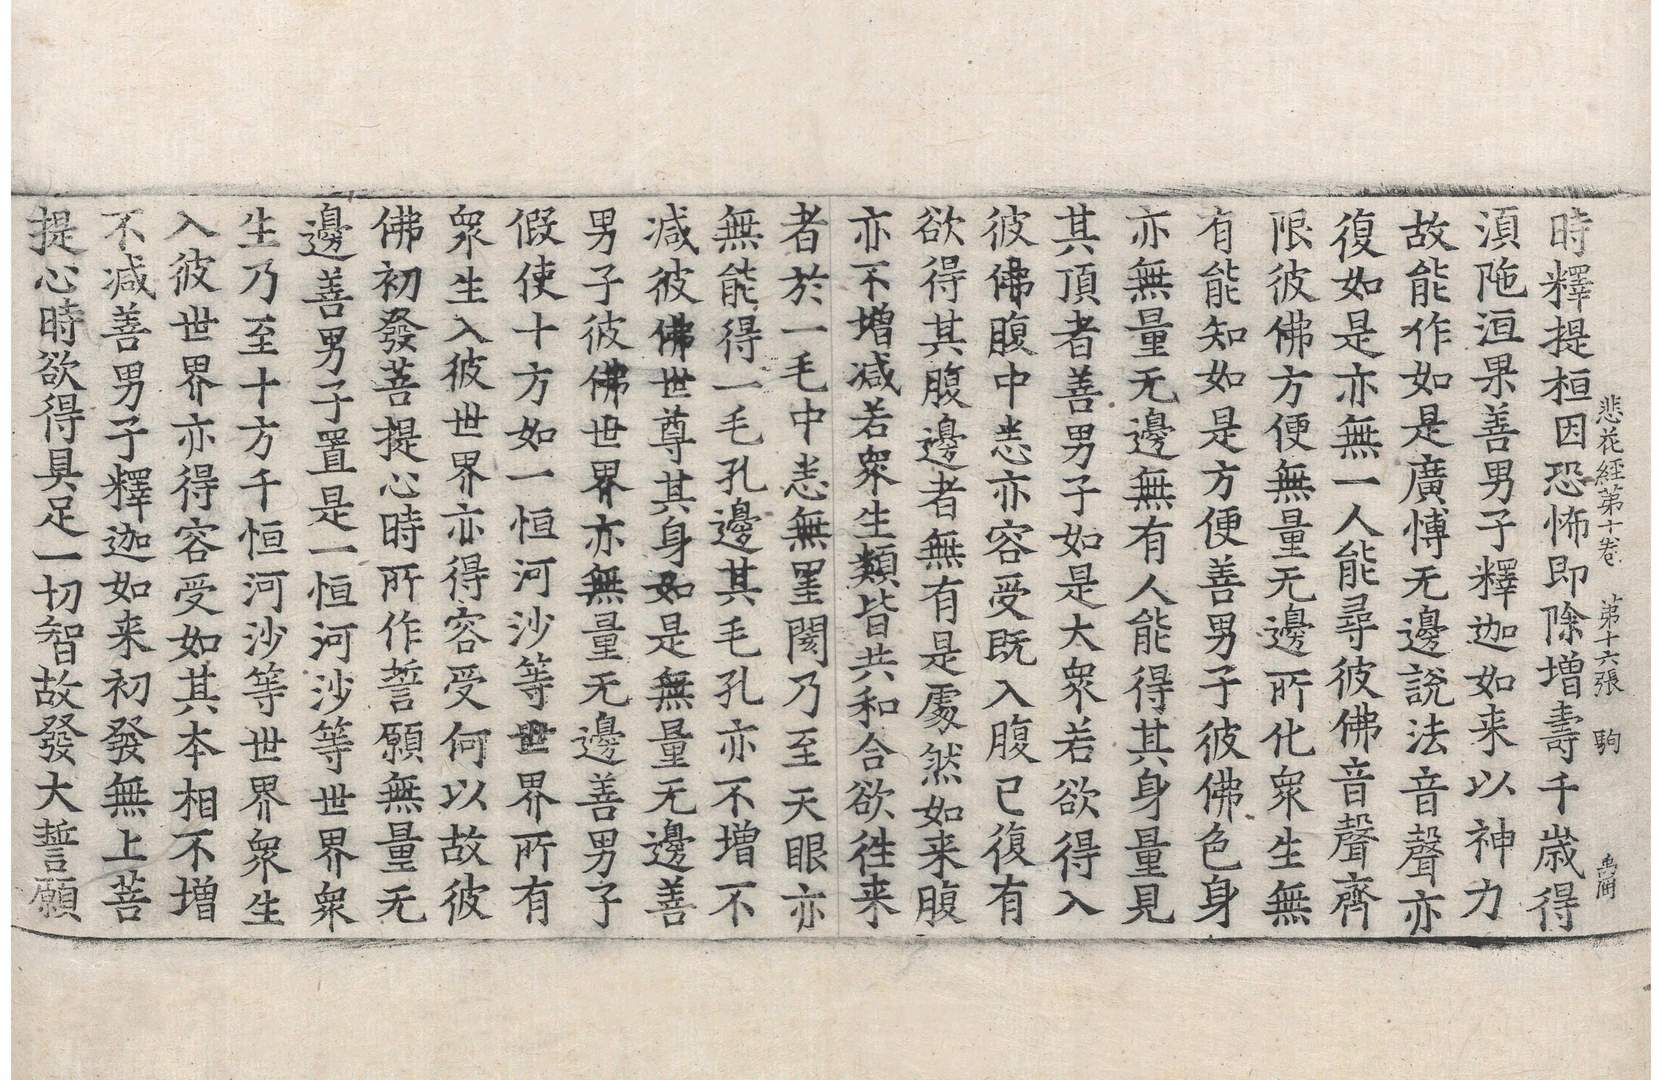 悲花經第十卷 第十六張 駒
時釋提桓因恐怖即除增壽千歲得
湏陁洹果善男子釋迦如来以神力
故能作如是廣愽无邊說法音聲亦
復如是亦無一人能尋彼佛音聲齊
限彼佛方便無量无邊所化衆生無
有能知如是方便善男子彼佛色身
亦無量无邊無有人能得其身量見
其頂者善男子如是大衆若欲得入
彼佛腹中悉亦容受既入腹已復有
欲得其腹邊者無有是處然如来腹
亦不增减若衆生類皆共和合欲徃来
者於一毛中悉無罣閡乃至天眼亦
無能得一毛孔邊其毛孔亦不增不
减彼佛世尊其身如是無量无邊善
男子彼佛世界亦無量无邊善男子
假使十方如一恒河沙等世界所有
衆生入彼世界亦得容受何以故彼
佛初發菩提心時所作誓願無量无
邊善男子置是一恒河沙等世界衆
生乃至十方千恒河沙等世界衆生
入彼世界亦得容受如其本相不增
不减善男子釋迦如来初發無上菩
提心時欲得具足一切智故發大誓願